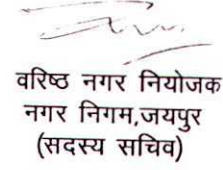 वरिष्ठ नगर नियोजक
नगर निगम,जयपुर
(सदस्य सचिव)